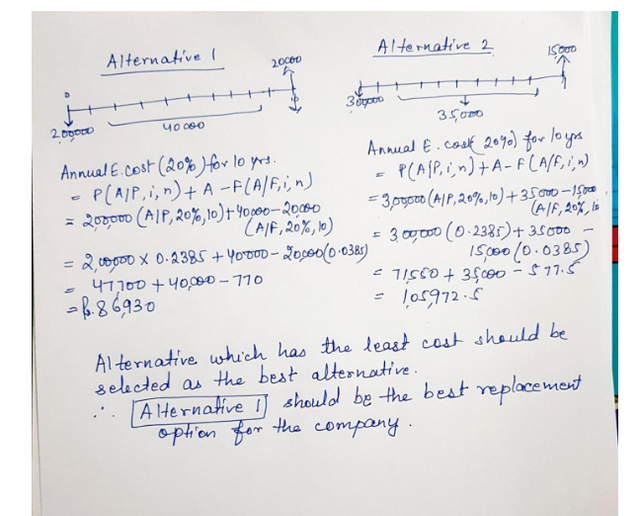 Alternative 1
0
20000
2,00,000
40000
Annual E. cost (20%) for 10 yrs.
= P(A/P, i, n) + A - F(A/F, i, n)
= 200,000 (A/P, 20%, 10) + 40000 - 20000
(A/F, 20%, 10)
= 2,00,000 x 0.2385 + 40000 - 20000 (0.0385)
= 47700 + 40,000 - 770
= Rs. 86930
Alternative 2
15000
300,000
35,000
Annual E. cost (20%) for 10 yrs
= P(A/P, i, n) + A - F(A/F, i, n)
= 3,00,000 (A/P, 20%, 10) + 35000 - 15000
(A/F, 20%, 10
= 3,00,000 (0.2385) + 35000 -
15,000 (0.0385)
= 71,550 + 35,000 - 577.5
= 1,05,972.5
Alternative which has the least cost should be
selected as the best alternative.
∴ Alternative 1 should be the best replacement
option for the company.